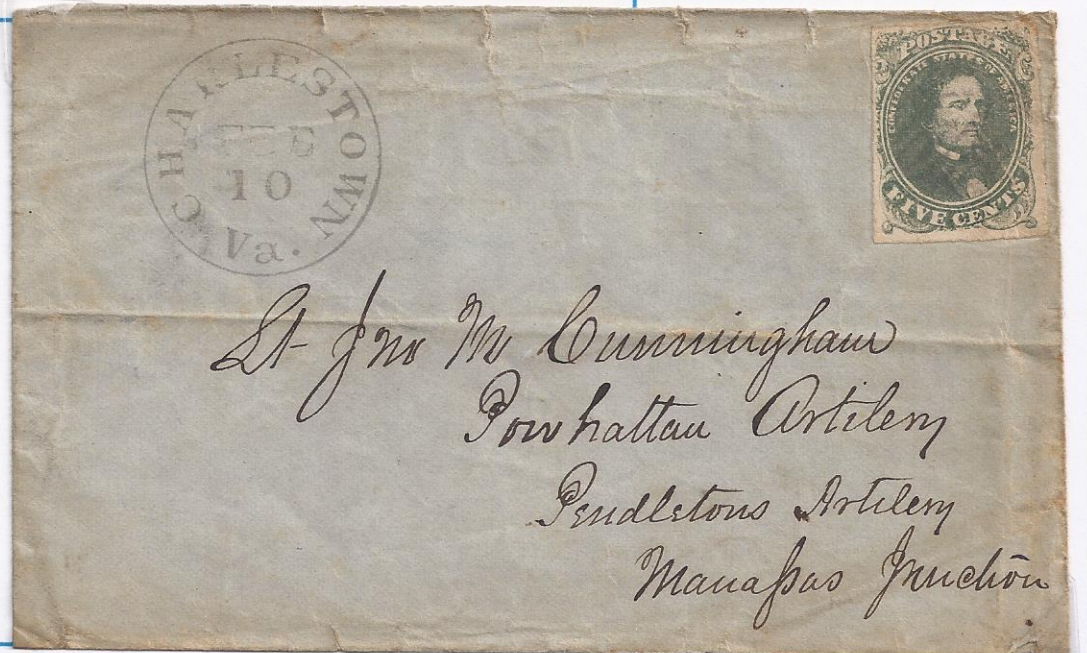 CHARLESTOWN
FEB
10
Va.
POSTAGE
CONFEDERATE STATES OF AMERICA
FIVE CENTS
Lt Jno M Cunningham
Powhattan Artilery
Pendletons Artilery
Manassas Junction